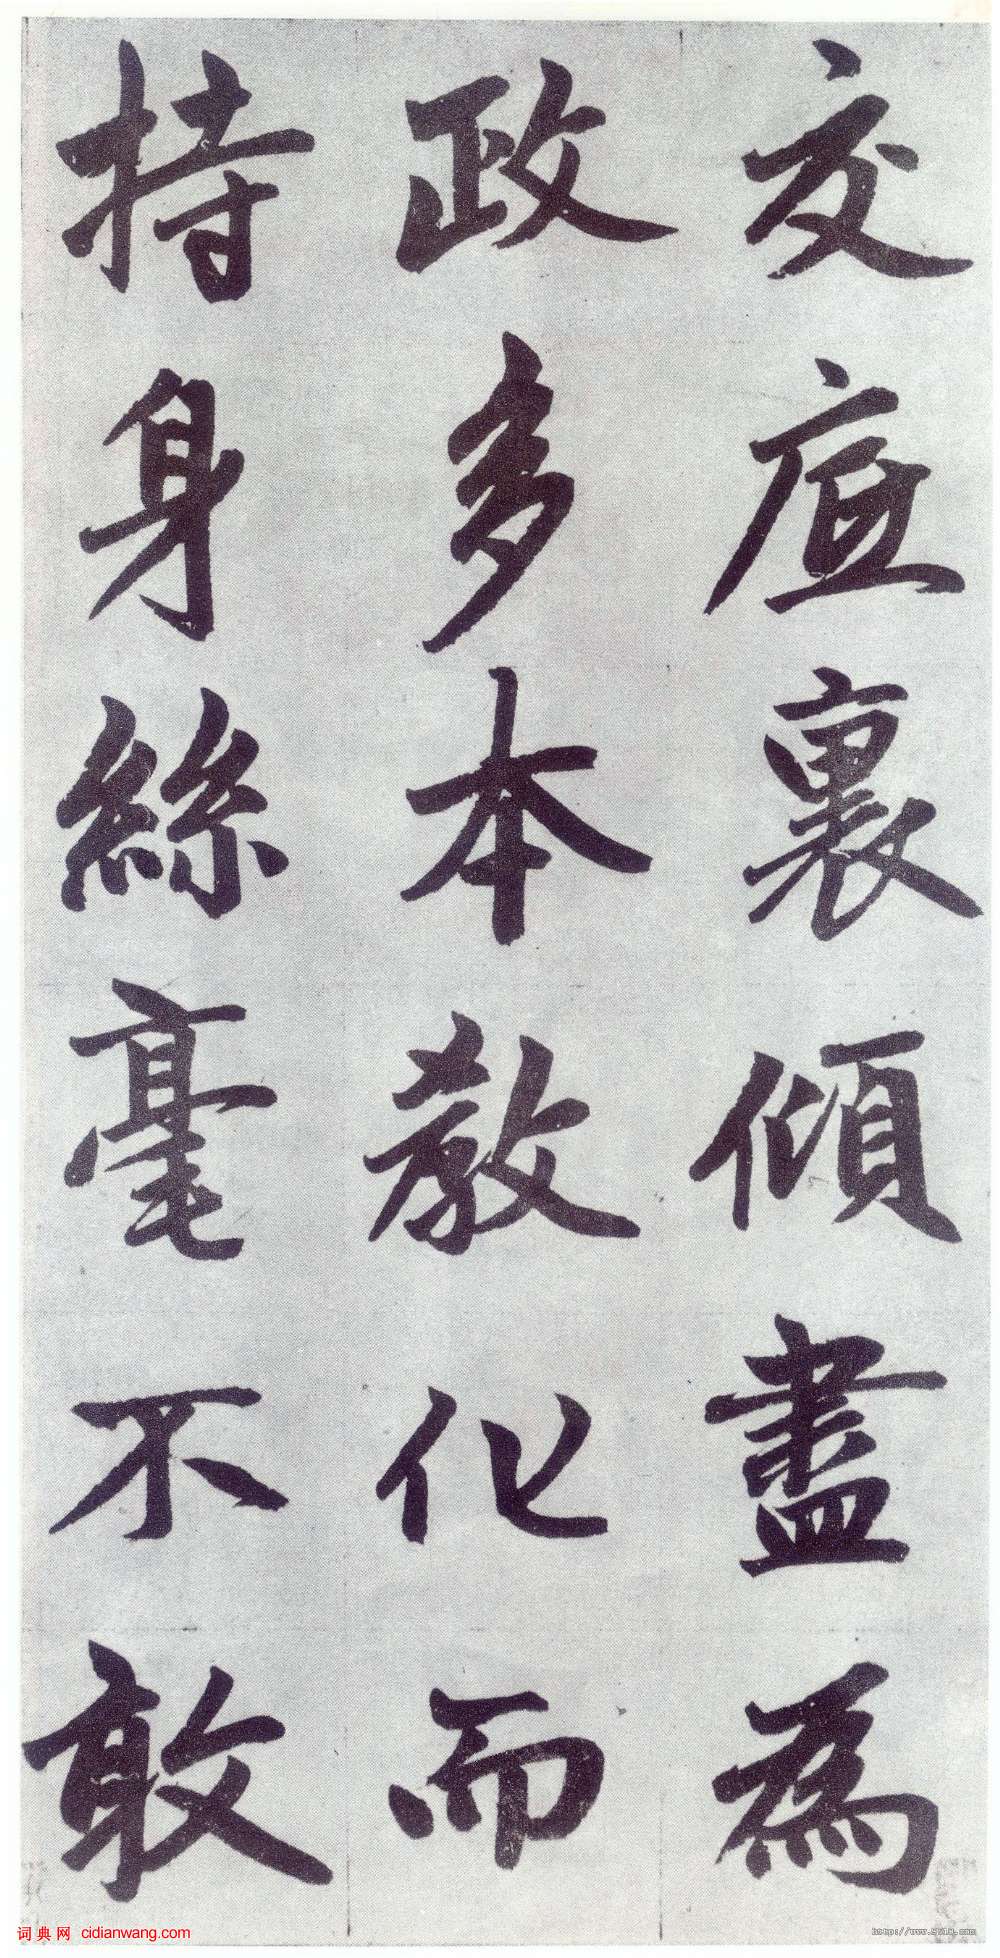 交底裏傾盡為
政多本教化而
持身絲毫不敢
词典网 cidianwang.com